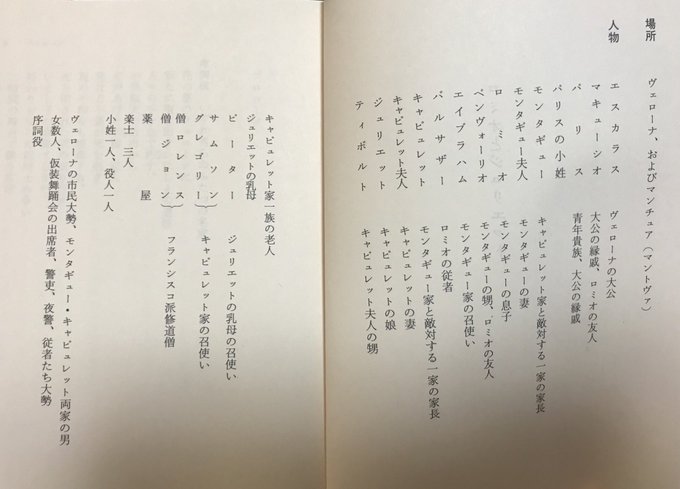 場所　ヴェローナ、およびマンチュア（マントヴァ）
人物
エスカラス　ヴェローナの大公
マキューシオ　大公の縁戚、ロミオの友人
パリス　青年貴族、大公の縁戚
パリスの小姓
モンタギュー　キャピュレット家と敵対する一家の家長
モンタギュー夫人　モンタギューの妻
ロミオ　モンタギューの息子
ベンヴォーリオ　モンタギューの甥、ロミオの友人
エイブラハム　モンタギュー家の召使い
バルサザー　ロミオの従者
キャピュレット　モンタギュー家と敵対する一家の家長
キャピュレット夫人　キャピュレットの妻
ジュリエット　キャピュレットの娘
ティボルト　キャピュレット夫人の甥
キャピュレット家一族の老人
ジュリエットの乳母
ピーター　ジュリエットの乳母の召使い
サムソン
グレゴリー　キャピュレット家の召使い
僧ロレンス
僧ジョン　フランシスコ派修道僧
薬屋
楽士　三人
小姓一人、役人一人
ヴェローナの市民大勢、モンタギュー・キャピュレット両家の男
女数人、仮装舞踊会の出席者、警吏、夜警、従者たち大勢
序詞役